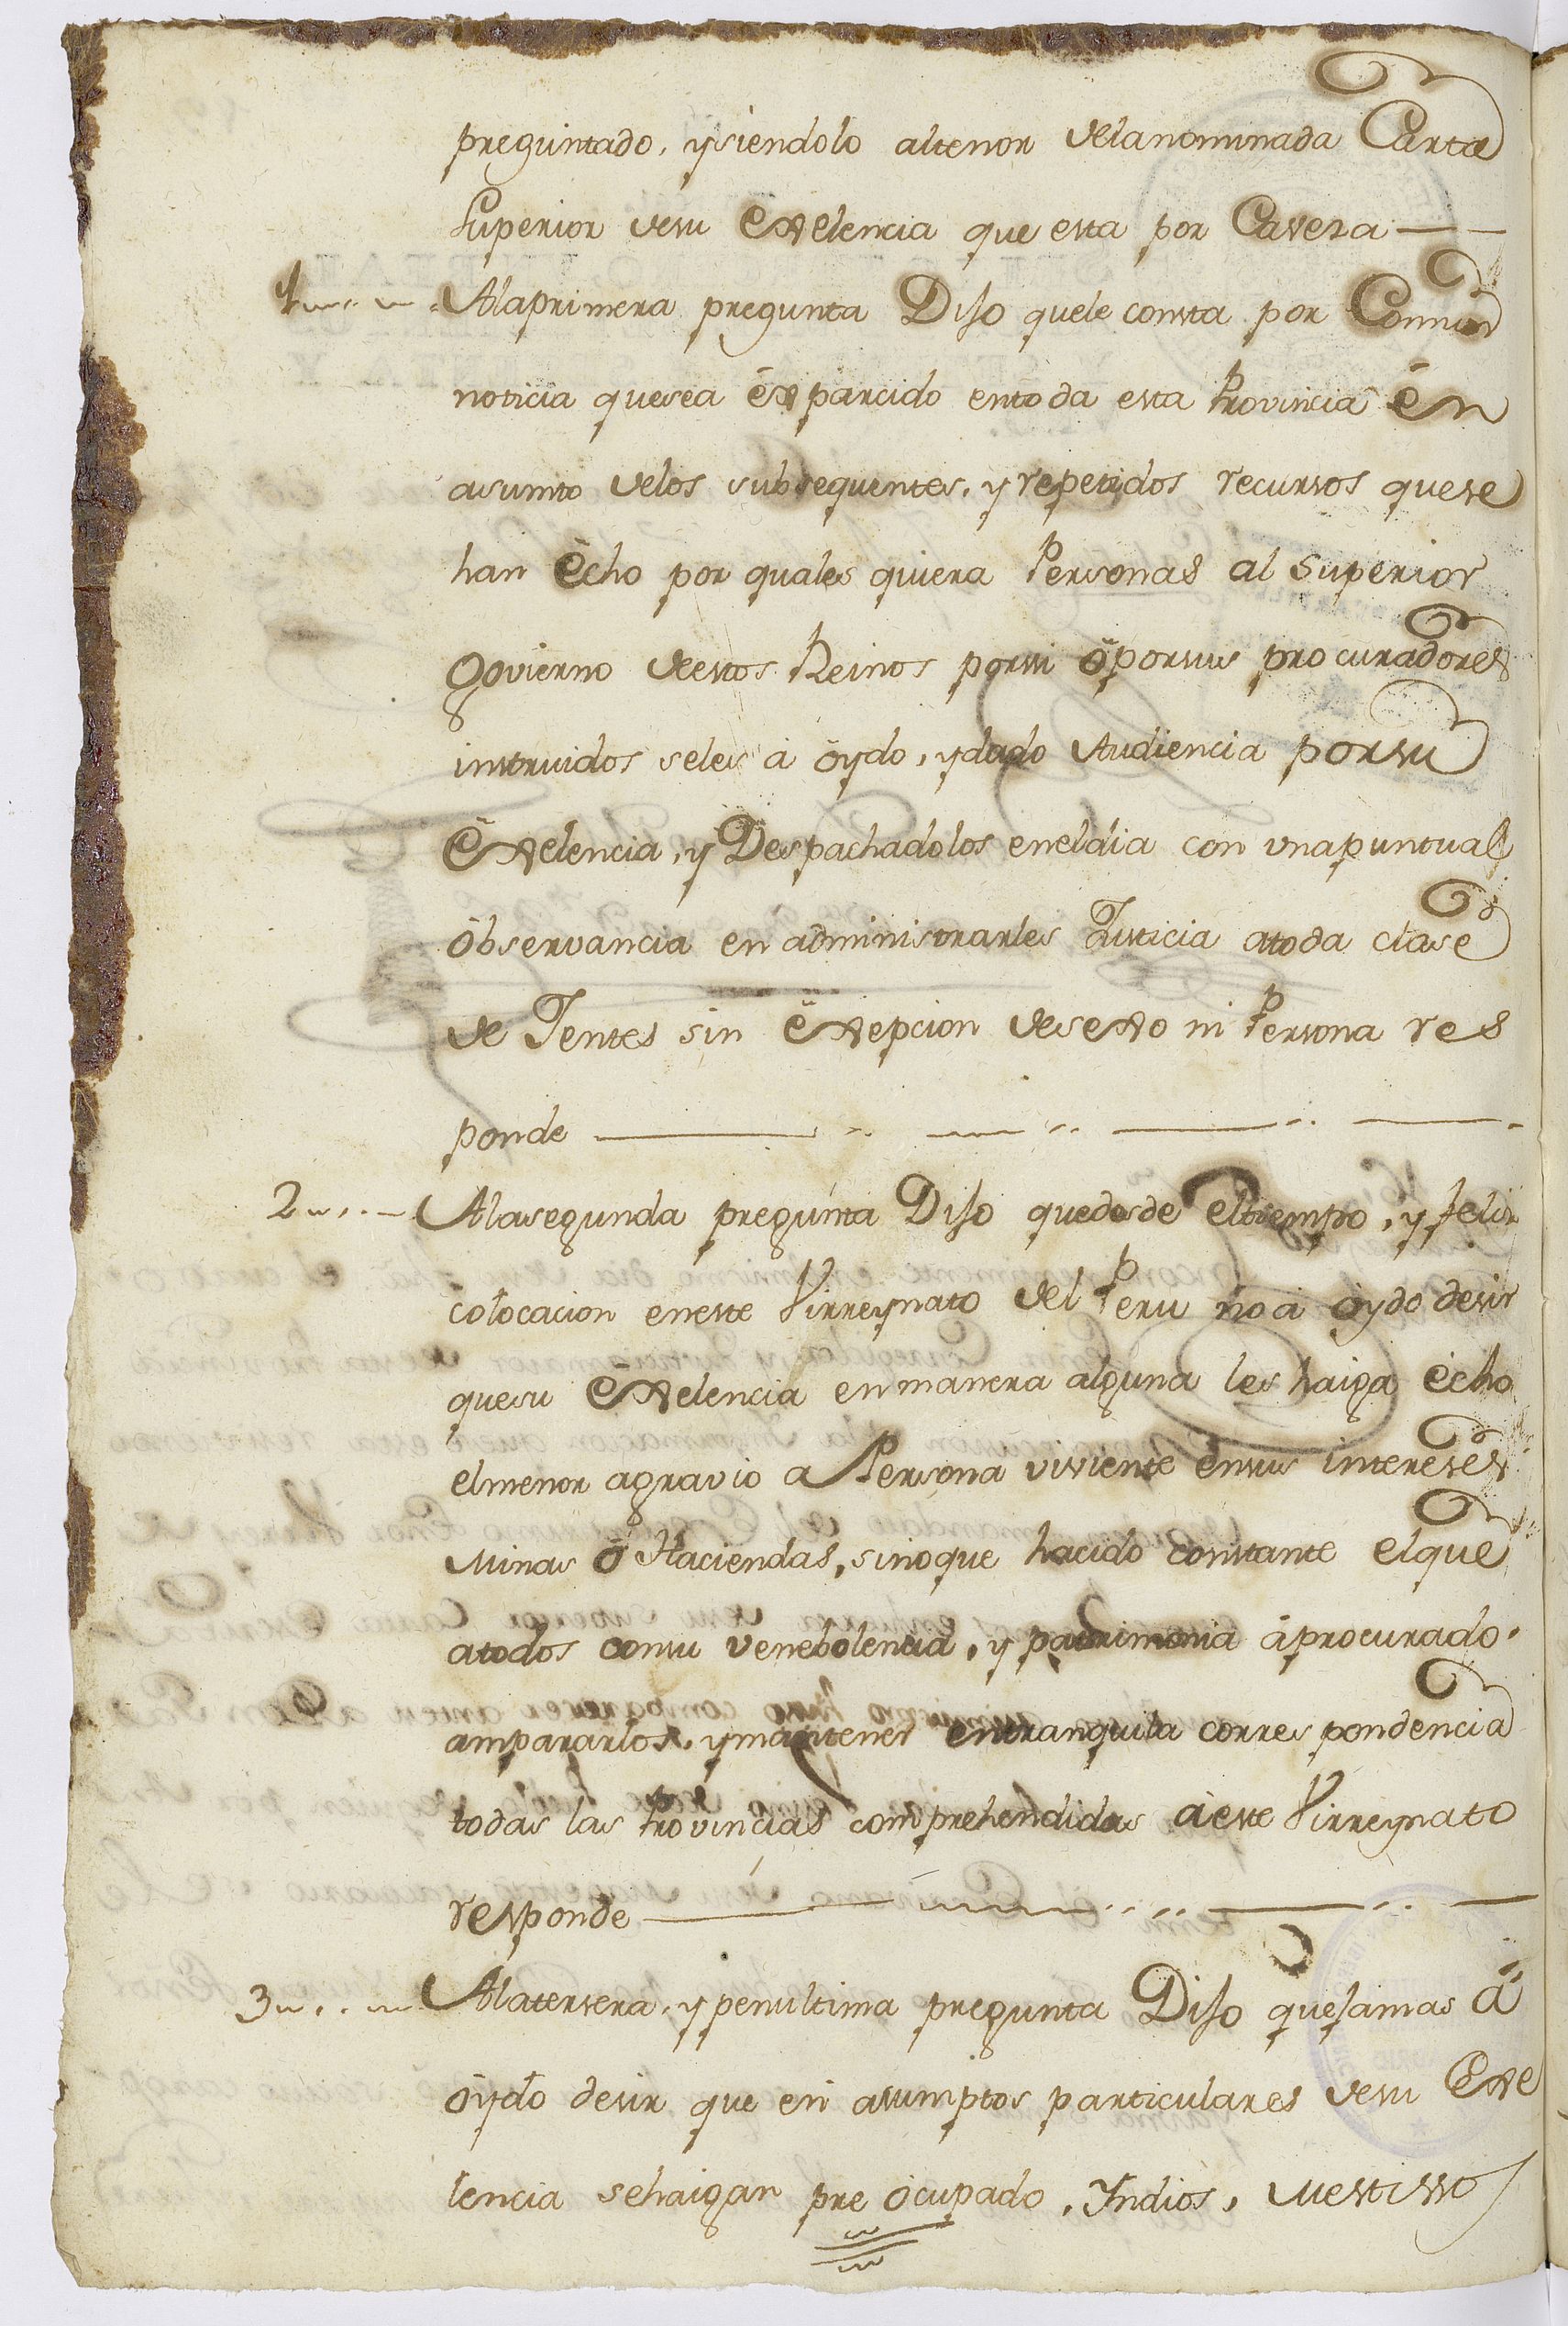 preguntado, ysiendolo altenor delanominada Carta
Superior desu Exelencia que esta por Cavesa
1 Alaprimera pregunta Dijo quele consta por Comun
noticia quesea exparcido entoda esta Provincia en
asumto delos subsequentes, y repetidos recursos quese
han echo por quales quiera Personas al Superior
Govierno deestos Reinos porsi ò porsus procuradores
instruidos seles à òydo, ydado Audiencia porsu
Exelencia, y Despachadolos eneldia con vnapuntual
òbservancia en administrarles Justicia atoda clase
de Jentes sin exepcion desexo ni Persona res
ponde
2 Alasegunda pregunta Dijo quedesde eltiempo, y felis
colocacion eneste Virreynato del Peru no à òydo desir
quesu Exelencia en manera alguna les haiga echo
elmenor agravio a Persona viviente ensus intereses
Minas ò Haciendas, sinoque hacido constante elque
atodos consu venebolencia, y patrimonia à procurado
ampararlos, ymantener entranquila correspondencia
todas las Provincias comprehendidas àeste Virreynato
responde
3 Alatersera, y penultima pregunta Dijo quejamas à
òydo desir que en asumptos particulares desu Exe
lencia sehaigan pre òcupado, Yndios, Mestisso